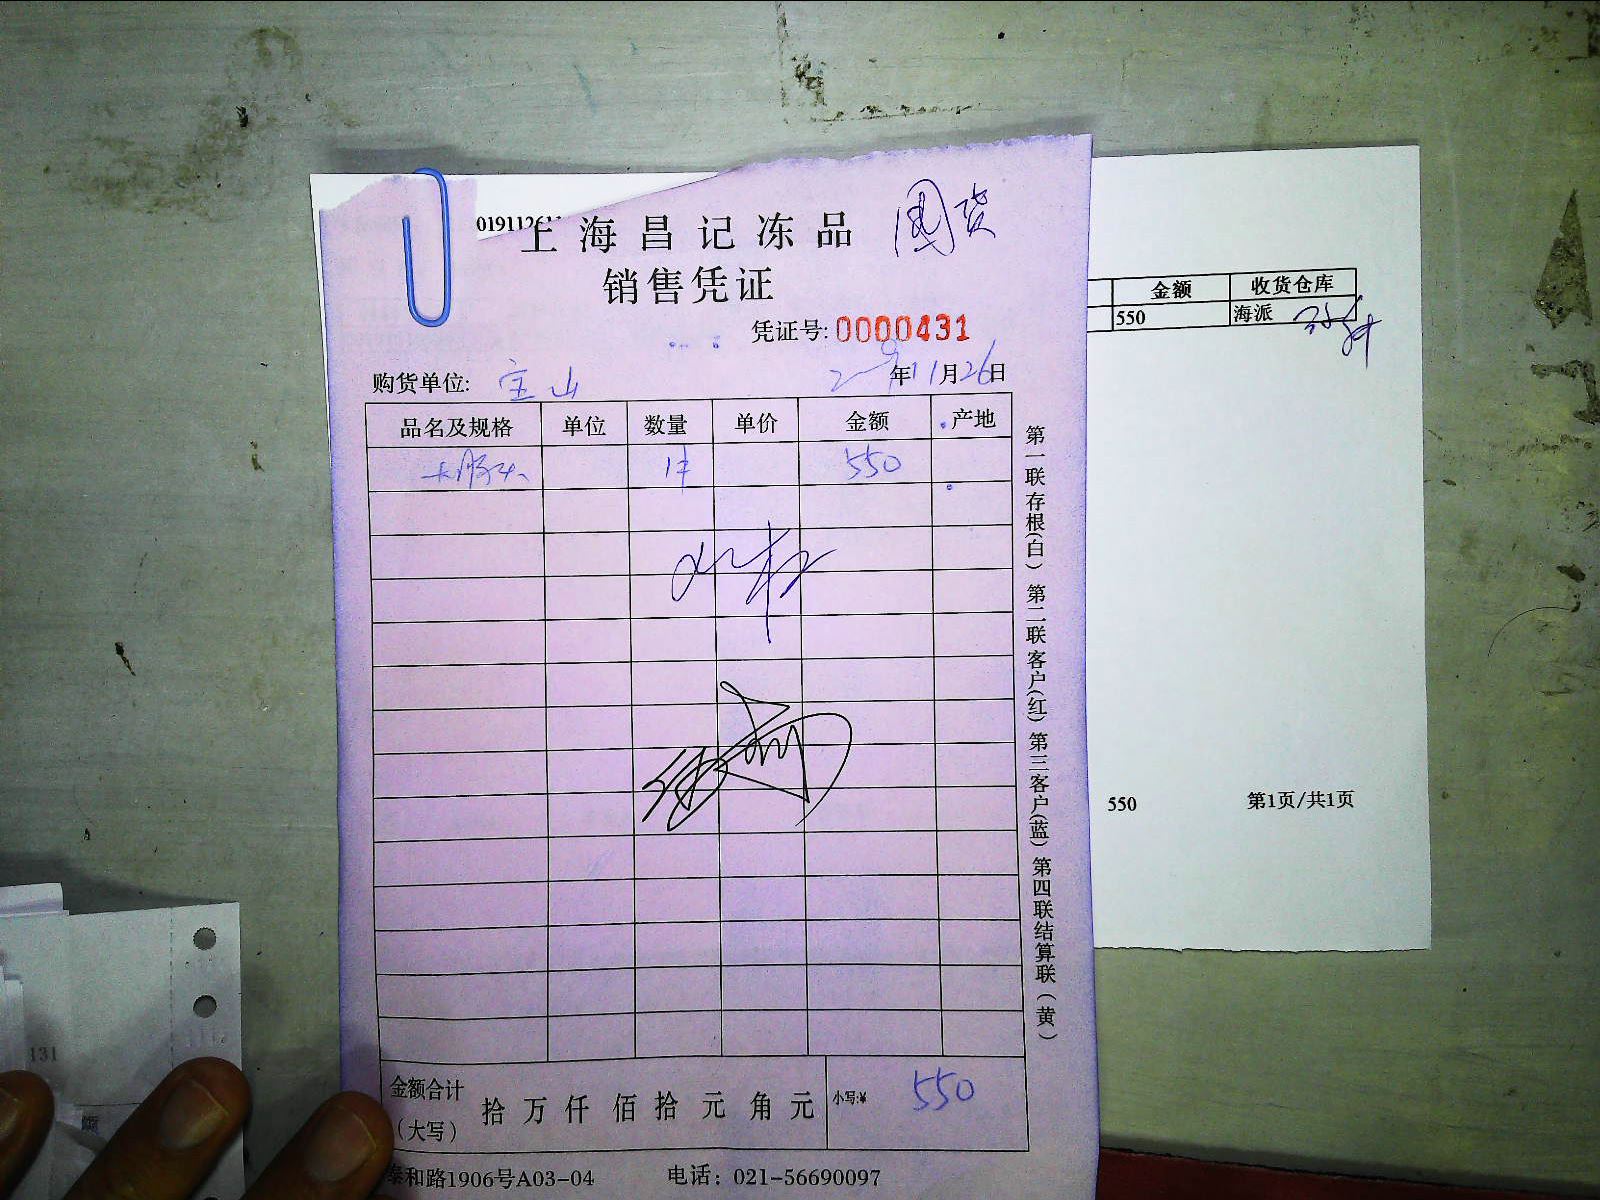 上海昌记冻品
国货
销售凭证
凭证号:0000431
购货单位: 宝山
年11月26日
品名及规格 单位 数量 单价 金额 产地
1件 550
金额合计（大写） 拾万仟佰拾元角元 小写:¥ 550
泰和路1906号A03-04 电话：021-56690097
第一联存根(白) 第二联客户(红) 第三客户(蓝) 第四联结算联(黄)
金额 收货仓库
550 海派
550 第1页/共1页
131